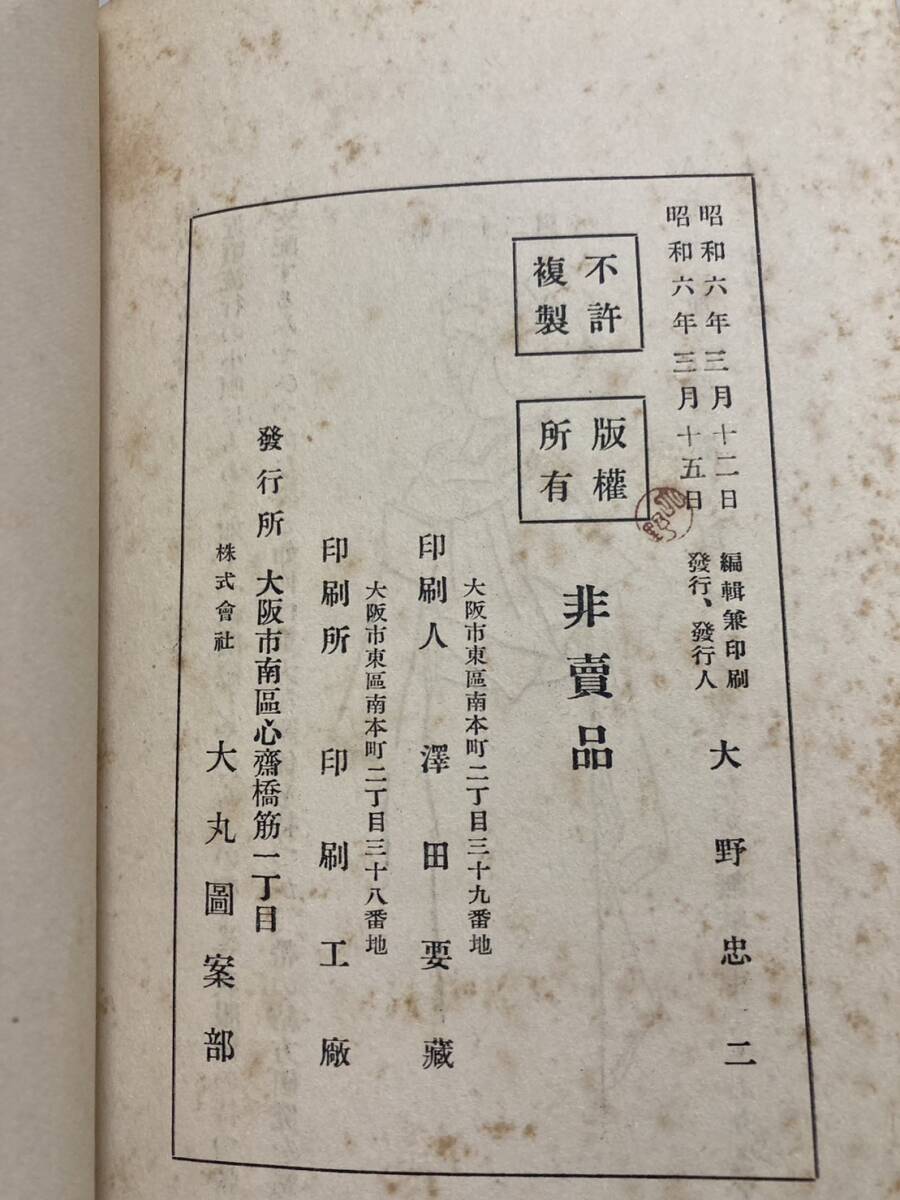 昭和六年三月十二日
昭和六年三月十五日
編輯兼印刷
發行、發行人
大野忠二
不許
複製
版權
所有
非賣品
大阪市東區南本町二丁目三十九番地
印刷人 澤田要藏
大阪市東區南本町二丁目三十八番地
印刷所 印刷工廠
發行所 大阪市南區心齋橋筋一丁目
株式會社 大丸圖案部